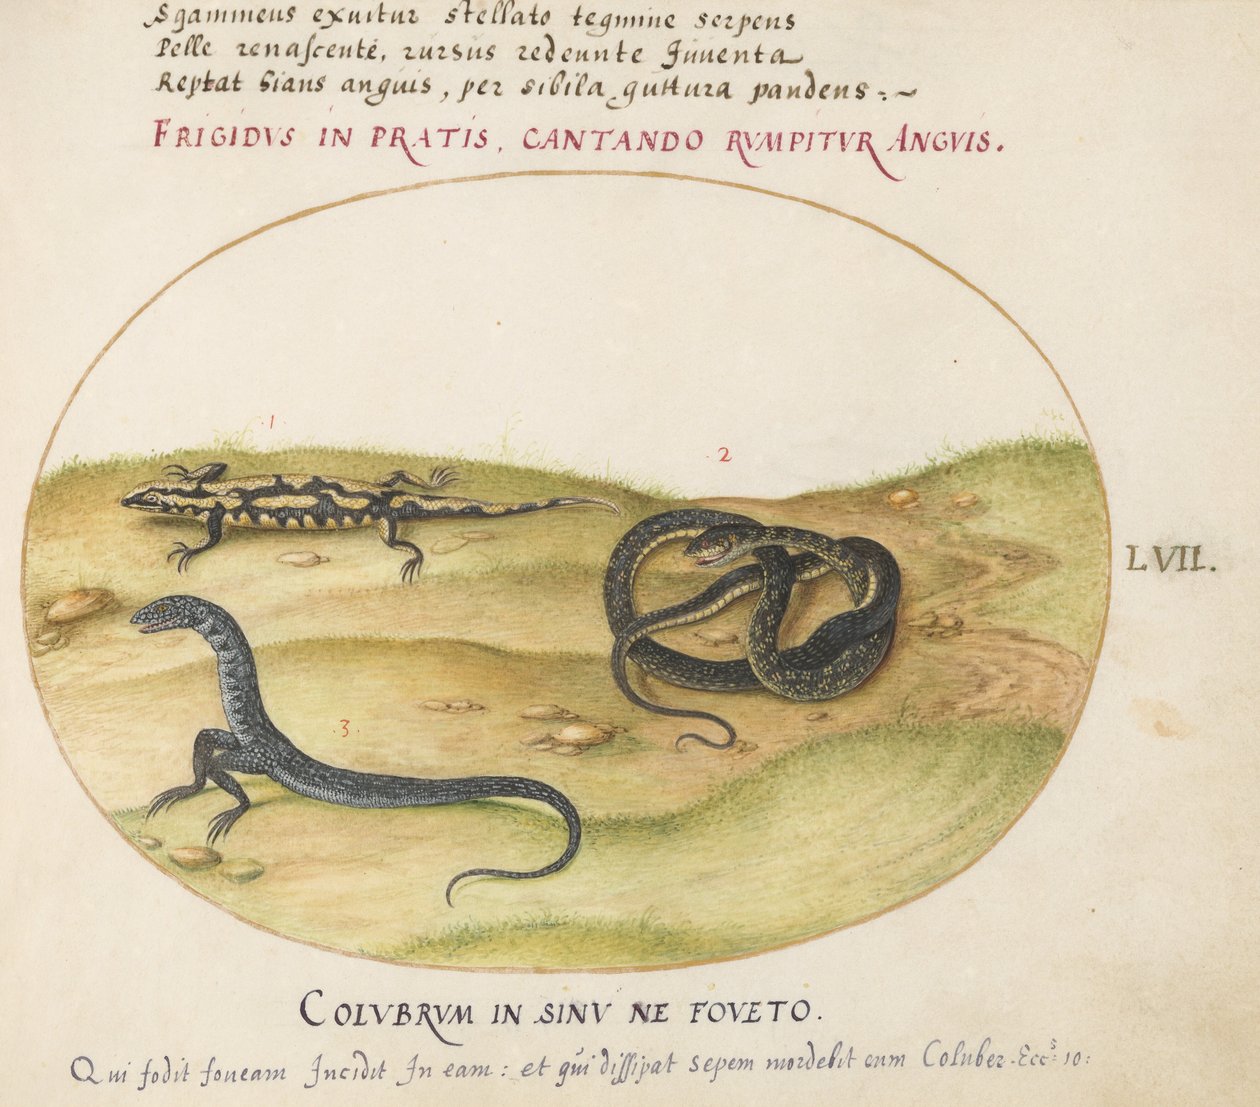 Sqammeus exuitur stellato tegmine serpens
Pelle renascente, rursus redeunte Juuenta
Reptat hians anguis, per sibila guttura pandens:~
FRIGIDVS IN PRATIS, CANTANDO RVMPITVR ANGVIS.
1
2
LVII.
3
COLVBRVM IN SINV NE FOVETO.
Qui fodit foueam Incidit In eam: et qui dissipat sepem mordebit eum Coluber. Eccs 10: